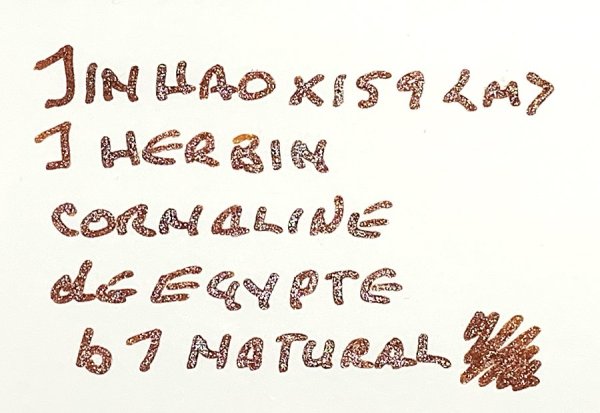 JINHAO X159 <M>
J HERBIN
CORNALINE
dE EGYPTE
b7 NATURAL